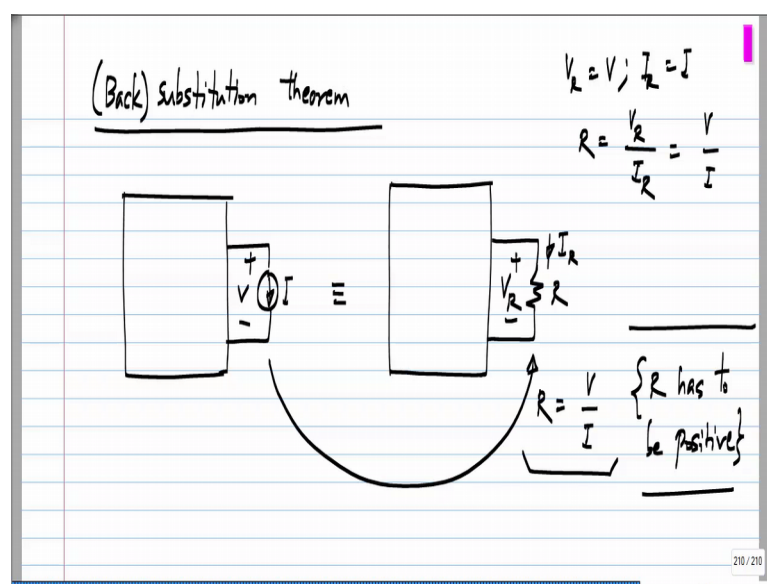 (Back) substitution theorem
V_R = V; I_R = I
R = V_R / I_R = V / I
+
V
-
I
≡
+
V_R
-
I_R
R
R = V / I
{R has to
be positive}
210 / 210